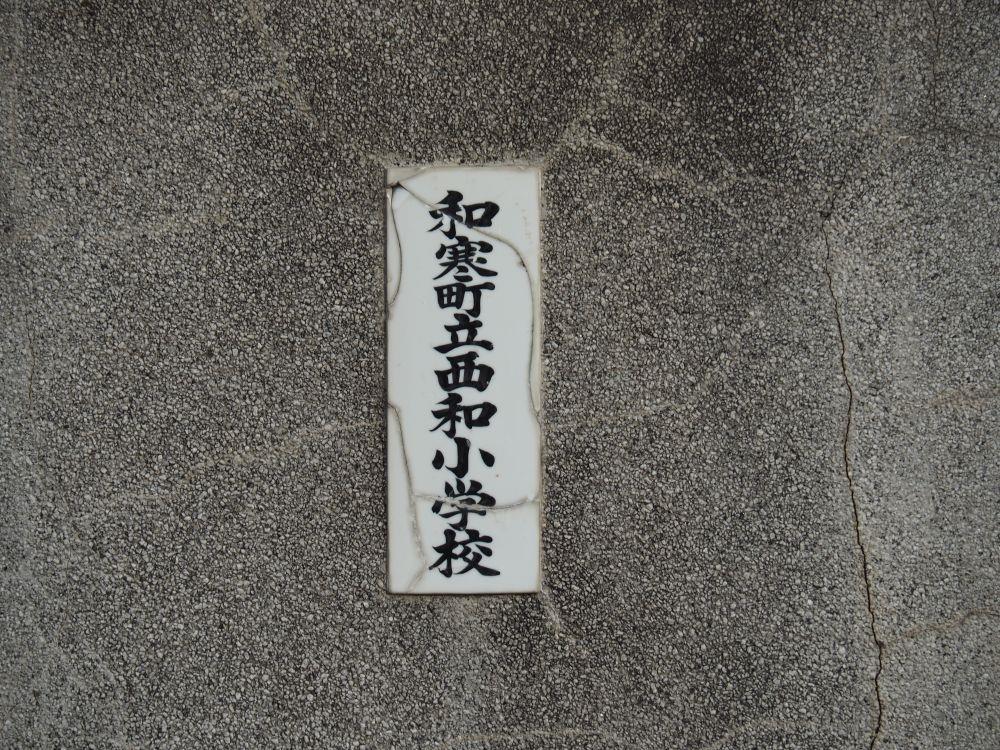 和寒町立西和小学校